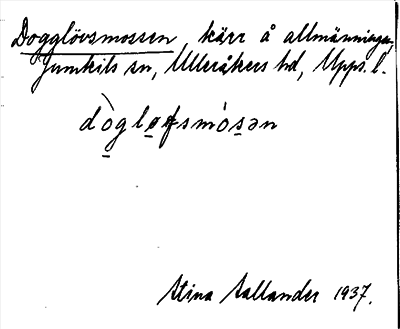 Dogglövsmossen, kärr å allmänningen,
Jumkils sn, Ulleråkers hd, Upps. l.
dògløfsmòsən
Stina Sallander 1937.